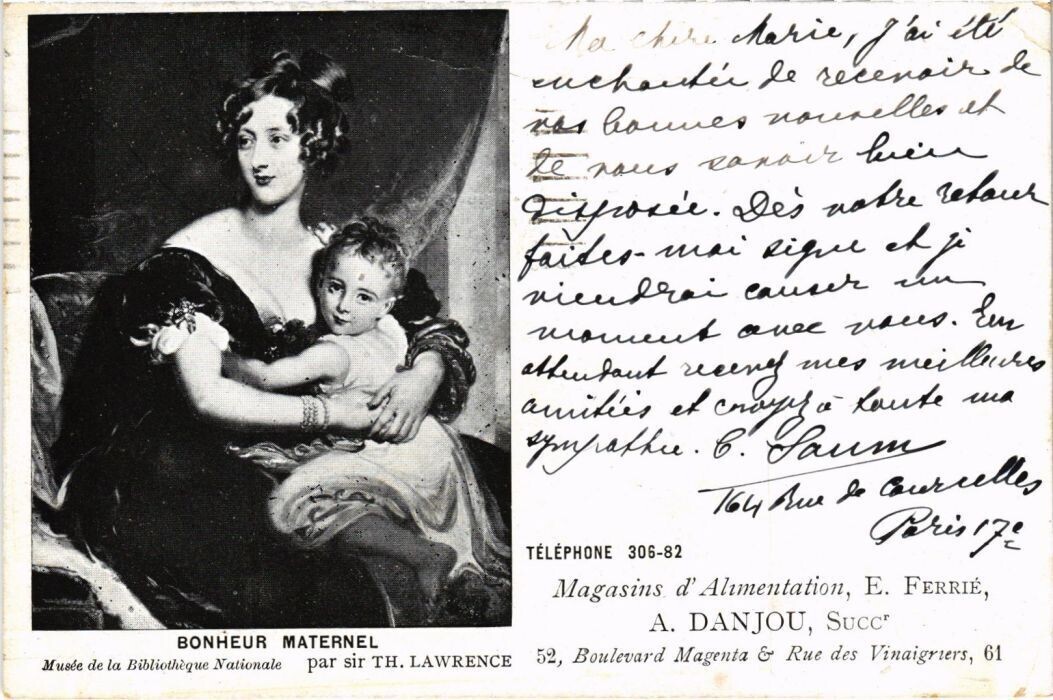 BONHEUR MATERNEL
Musée de la Bibliothèque Nationale par sir TH. LAWRENCE
Ma chère Marie, J'ai été
enchantée de recevoir de
vos bonnes nouvelles et
de vous savoir bien
disposée. Dès votre retour
faites-moi signe et je
viendrai causer un
moment avec vous. En
attendant recevez mes meilleures
amitiés et croyez à toute ma
sympathie. C. Saum
164 Rue de Courcelles
Paris 17e
TÉLÉPHONE 306-82
Magasins d'Alimentation, E. FERRIÉ,
A. DANJOU, Succr
52, Boulevard Magenta & Rue des Vinaigriers, 61